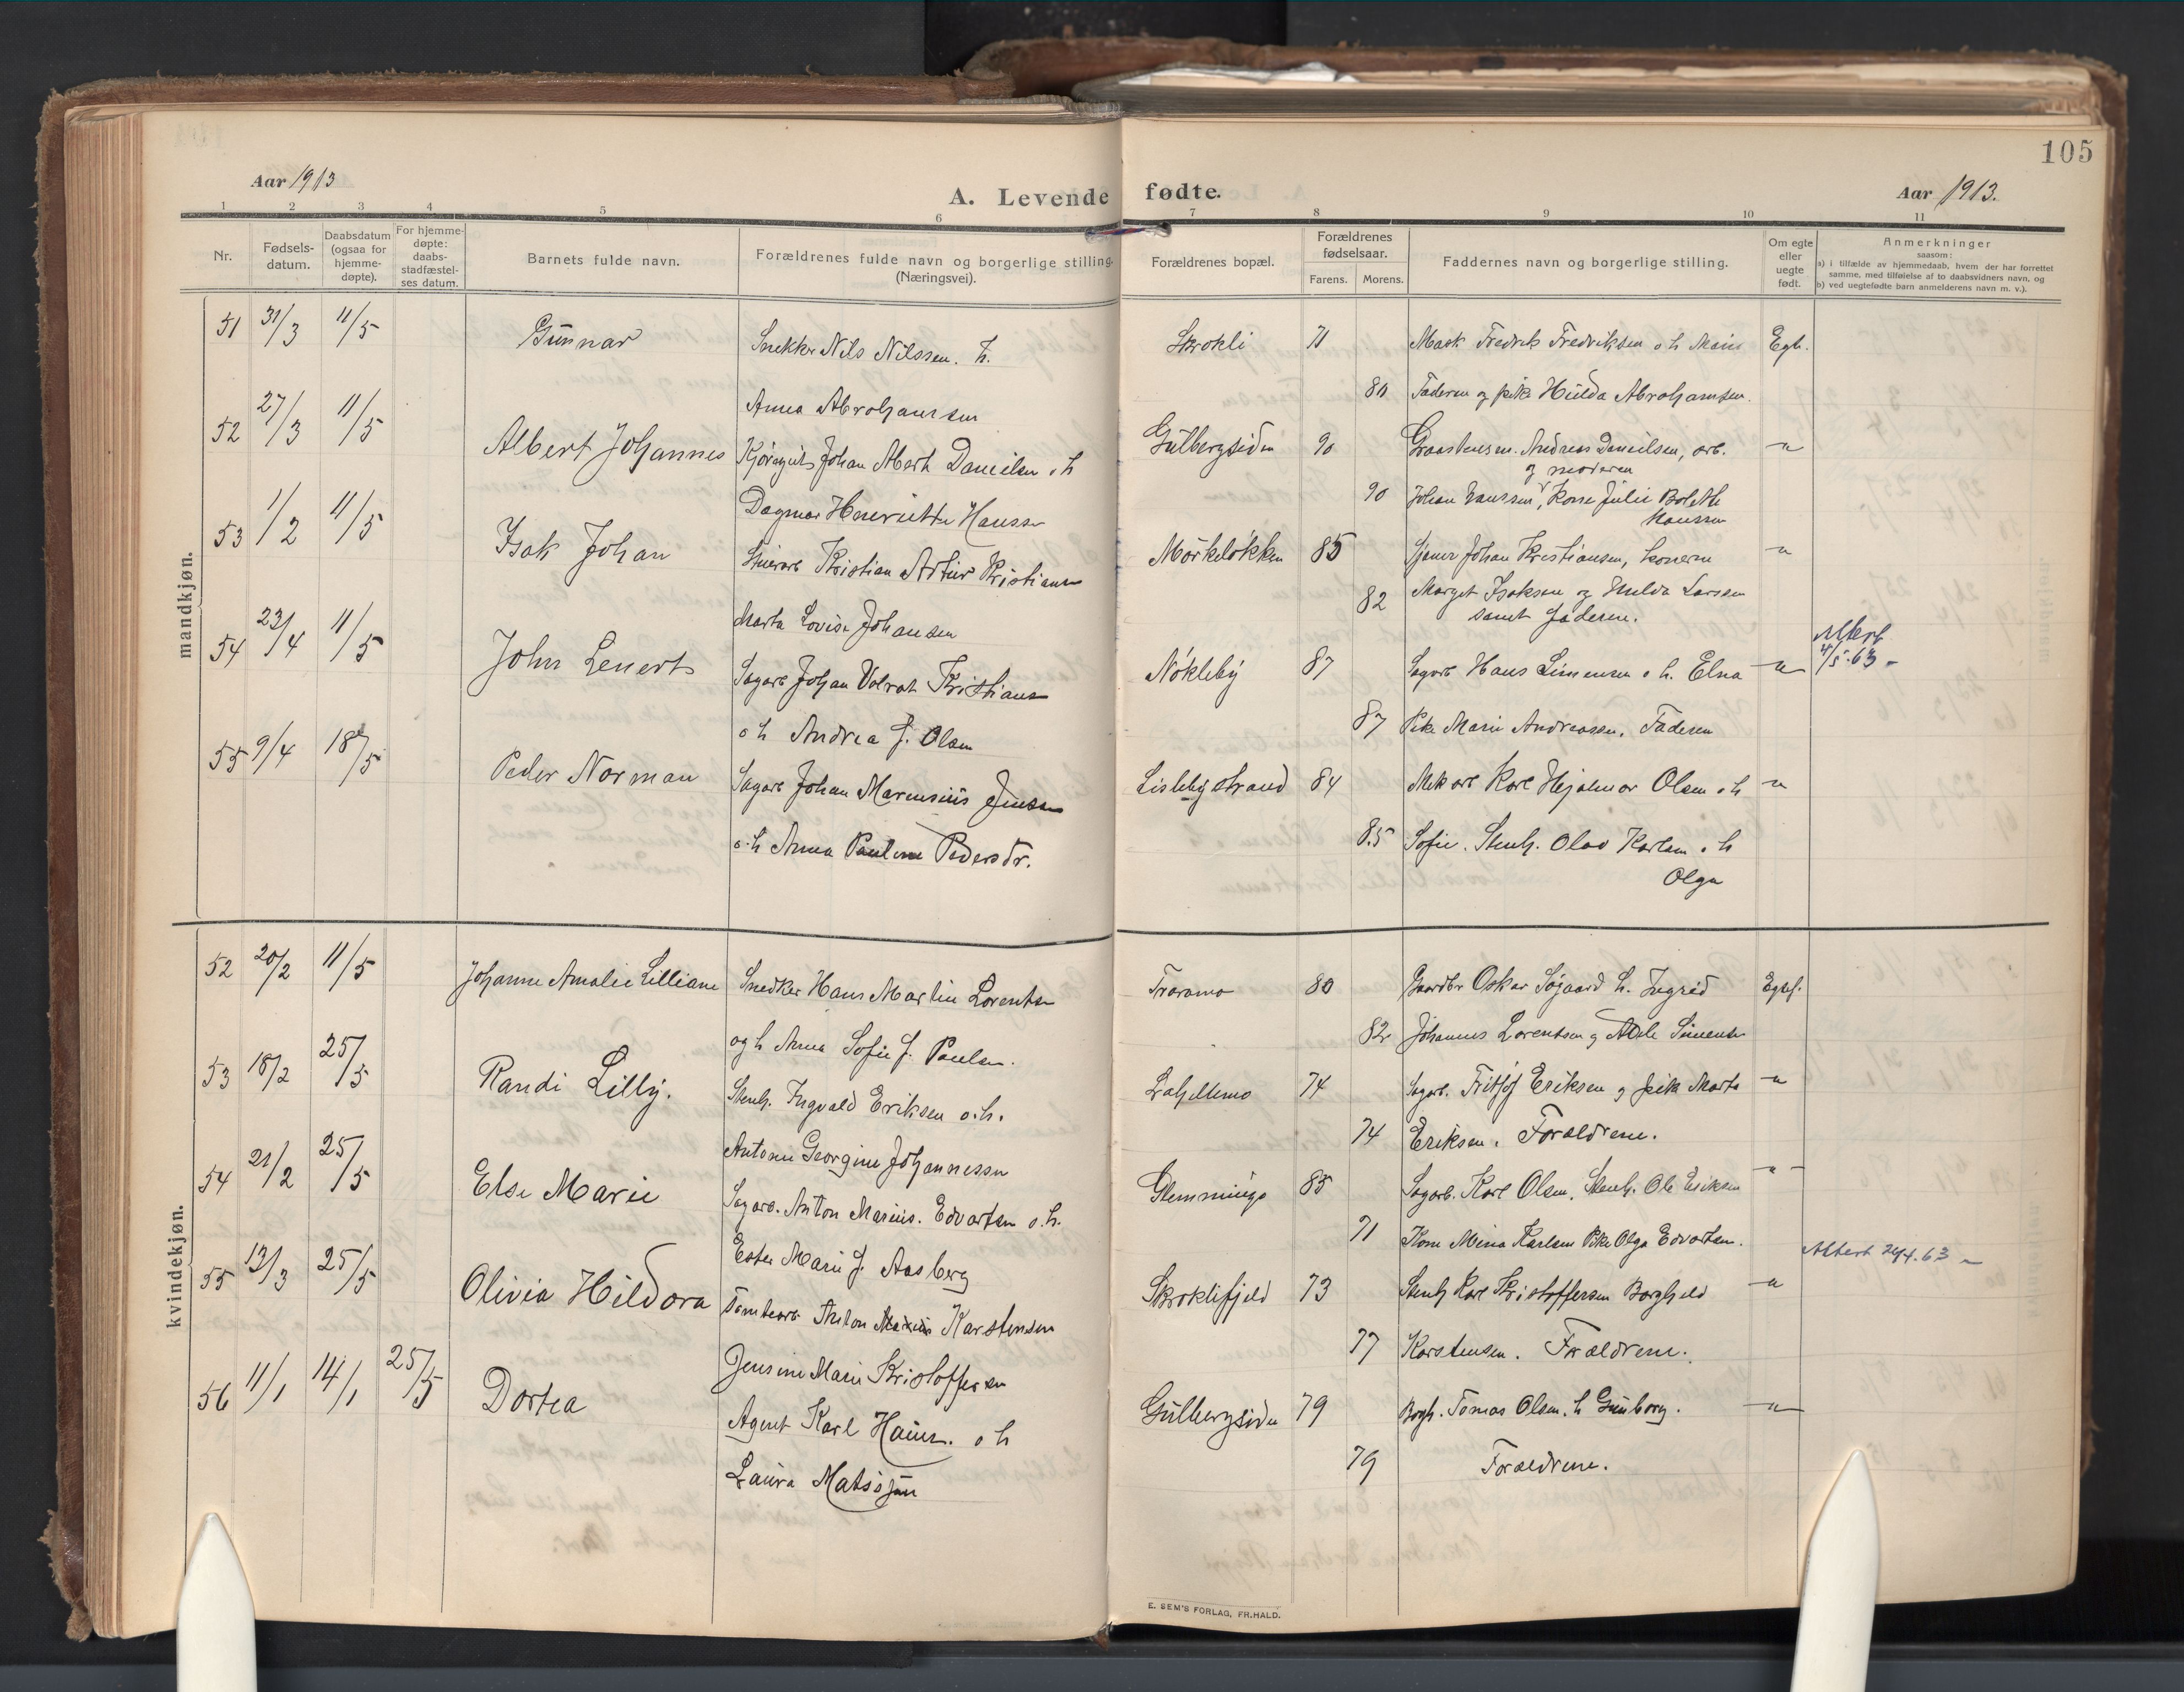 105
Aar 1913
A. Levende fødte.
Aar 1913.
1 2 3 4 5 6 7 8 9 10 11
Nr.
Fødsels-
datum.
Daabsdatum
(ogsaa for
hjemme-
døpte).
For hjemme-
døpte:
daabs-
stadfæstel-
ses datum.
Barnets fulde navn.
Forældrenes fulde navn og borgerlige stilling.
(Næringsvei).
Forældrenes bopæl.
Forældrenes
fødselsaar.
Farens. Morens.
Faddernes navn og borgerlige stilling.
Om egte
eller
uegte
født.
Anmerkninger
saasom:
a) i tilfælde av hjemmedaab, hvem der har forrettet
samme, med tilføielse af to daabsvidners navn, og
b) ved uegtefødte barn anmelderens navn m. v.).
mandkjøn.
51 31/3 11/5 Gunnar Snekker Nils Nilssen. h. Skrokli 71 Mask Fredrik Fredriksen o h Marie Egte.
Anna Abrahamsen 80 Faderen og pike Hulda Abrahamsen.
52 27/3 11/5 Albert Johannes Kjøregut Johan Albert Danielsen o h Gulbergsiden 90 Graastensm. Andreas Danielsen, arb. -"-
og moderen
Dagmar Henriette Hanssen 90 Johan Hanssen, Kone Julie Bolette
Hanssen
53 1/2 11/5 Isak Johan Kristian Artur Kristiansen Mørkeløkken 85 Johan Kristiansen, konerne -"-
Marta Lovise Johansen 82 Marget Isaksen og Hulda Larsen
samt faderen.
54 23/4 11/5 John Lenert Sagarb Johan Volrat Kristians Nøkleby 87 Sagarb Hans Simensen o h. Elna -"- Attest
4/5-63 -
o h Andrea f. Olsen 87 Pike Marie Andreassen, Faderen
55 9/4 18/5 Peder Norman Sagarb Johan Marensius Jensen Lislebystrand 84 Mek arb Karl Hjalmar Olsen o h -"-
o.h Anna Pauline Pedersdr. 85 Sofie. Stenh. Olav Karlsen o h
Olga
kvindekjøn.
52 20/2 11/5 Johanne Amalie Lilliane Snedker Hans Martin Lorentsen Traramo 80 Gaardbr Oskar Søgaard h. Ingrid Egtef.
og h Anna Sofie f. Paulsen. 82 Johannes Lorentsen og Adele Simensen
53 18/2 25/5 Randi Lilly. Stenh. Ingvald Eriksen o.h. Lahellemo 74 Sagarb. Fritjof Eriksen og pike Marta -"-
Antonie Georgine Johannessen 74 Eriksen. Forældrene.
54 21/2 25/5 Else Marie Sagarb. Anton Marius. Edvartsen o.h. Glemminge 85 Sagarb. Karl Olsen, Stenh. Ole Eriksen -"-
Ester Marie f. Aasberg 71 Kone Mina Karlsen Pike Olga Edvartsen.
55 13/3 25/5 Olivia Hildora Tomtearb Anton Marius Karstensen Skroklifjeld 73 Stenh Karl Kristoffersen Borghild -"- Attest 29/4.63 -
Jensine Marie Kristoffersen 77 Karstensen. Forældrene.
56 11/1 14/1 25/5 Dortea Agent Karl o h Gulbergsiden 79 Tomas Olsen. h Gunborg. -"-
Laura 79 Forældrene.
E. SEM'S FORLAG, FR.HALD.